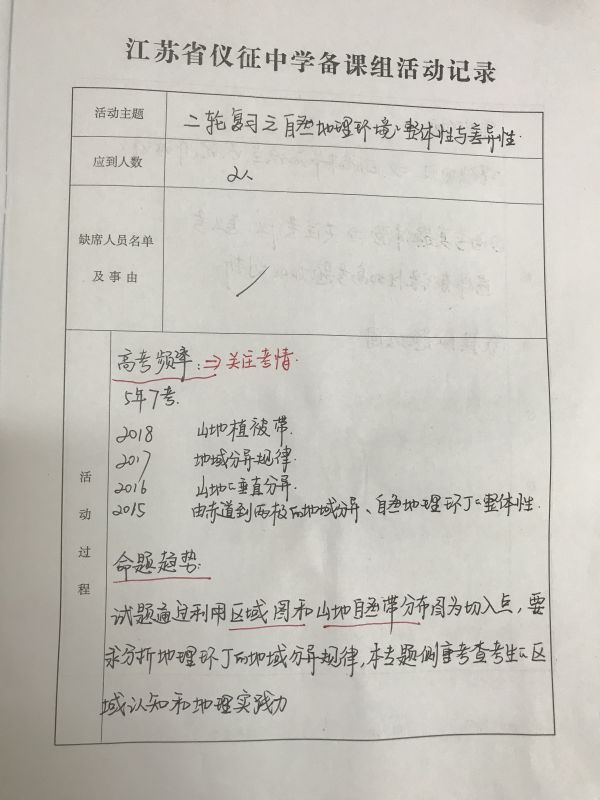 江苏省仪征中学备课组活动记录
活动主题
二轮复习之自然地理环境的整体性与差异性.
应到人数
2人
缺席人员名单
及事由
高考频率:⇒关注考情.
5年7考.
2018 山地植被带.
2017 地域分异规律.
2016 山地的垂直分异.
2015 由赤道到两极的地域分异、自然地理环丁的整体性.
活动过程
命题趋势:
试题通过利用区域图和山地自然带分布图为切入点,要
求分析地理环丁的地域分异规律,本专题侧重考查考生的区
域认知和地理实践力